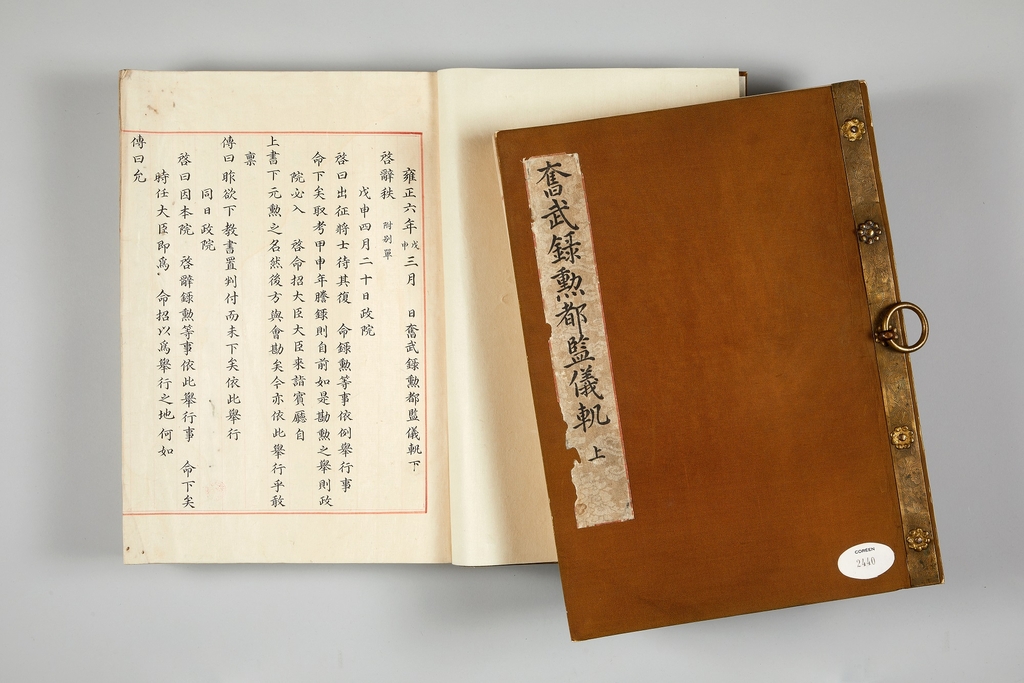 雍正六年戊申三月 日奮武錄勲都監儀軌下
啓辭秩 附別單
戊申四月二十日政院
啓曰出征將士待其復 命錄勲等事依例舉行事
命下矣取考甲申年謄錄則自前如是勘勲之舉則政
院必入 啓命招大臣大臣来詣賓廳自
上書下元勲之名然後方與會勘矣今亦依此舉行乎敢
禀
傳曰昨欲下教書置判付而未下矣依此舉行
同日政院
啓曰因本院 啓辭錄勲等事依此舉行事 命下矣
時任大臣即爲 命招以爲舉行之地何如
傳曰允
奮武錄勲都監儀軌 上
COREEN
2440